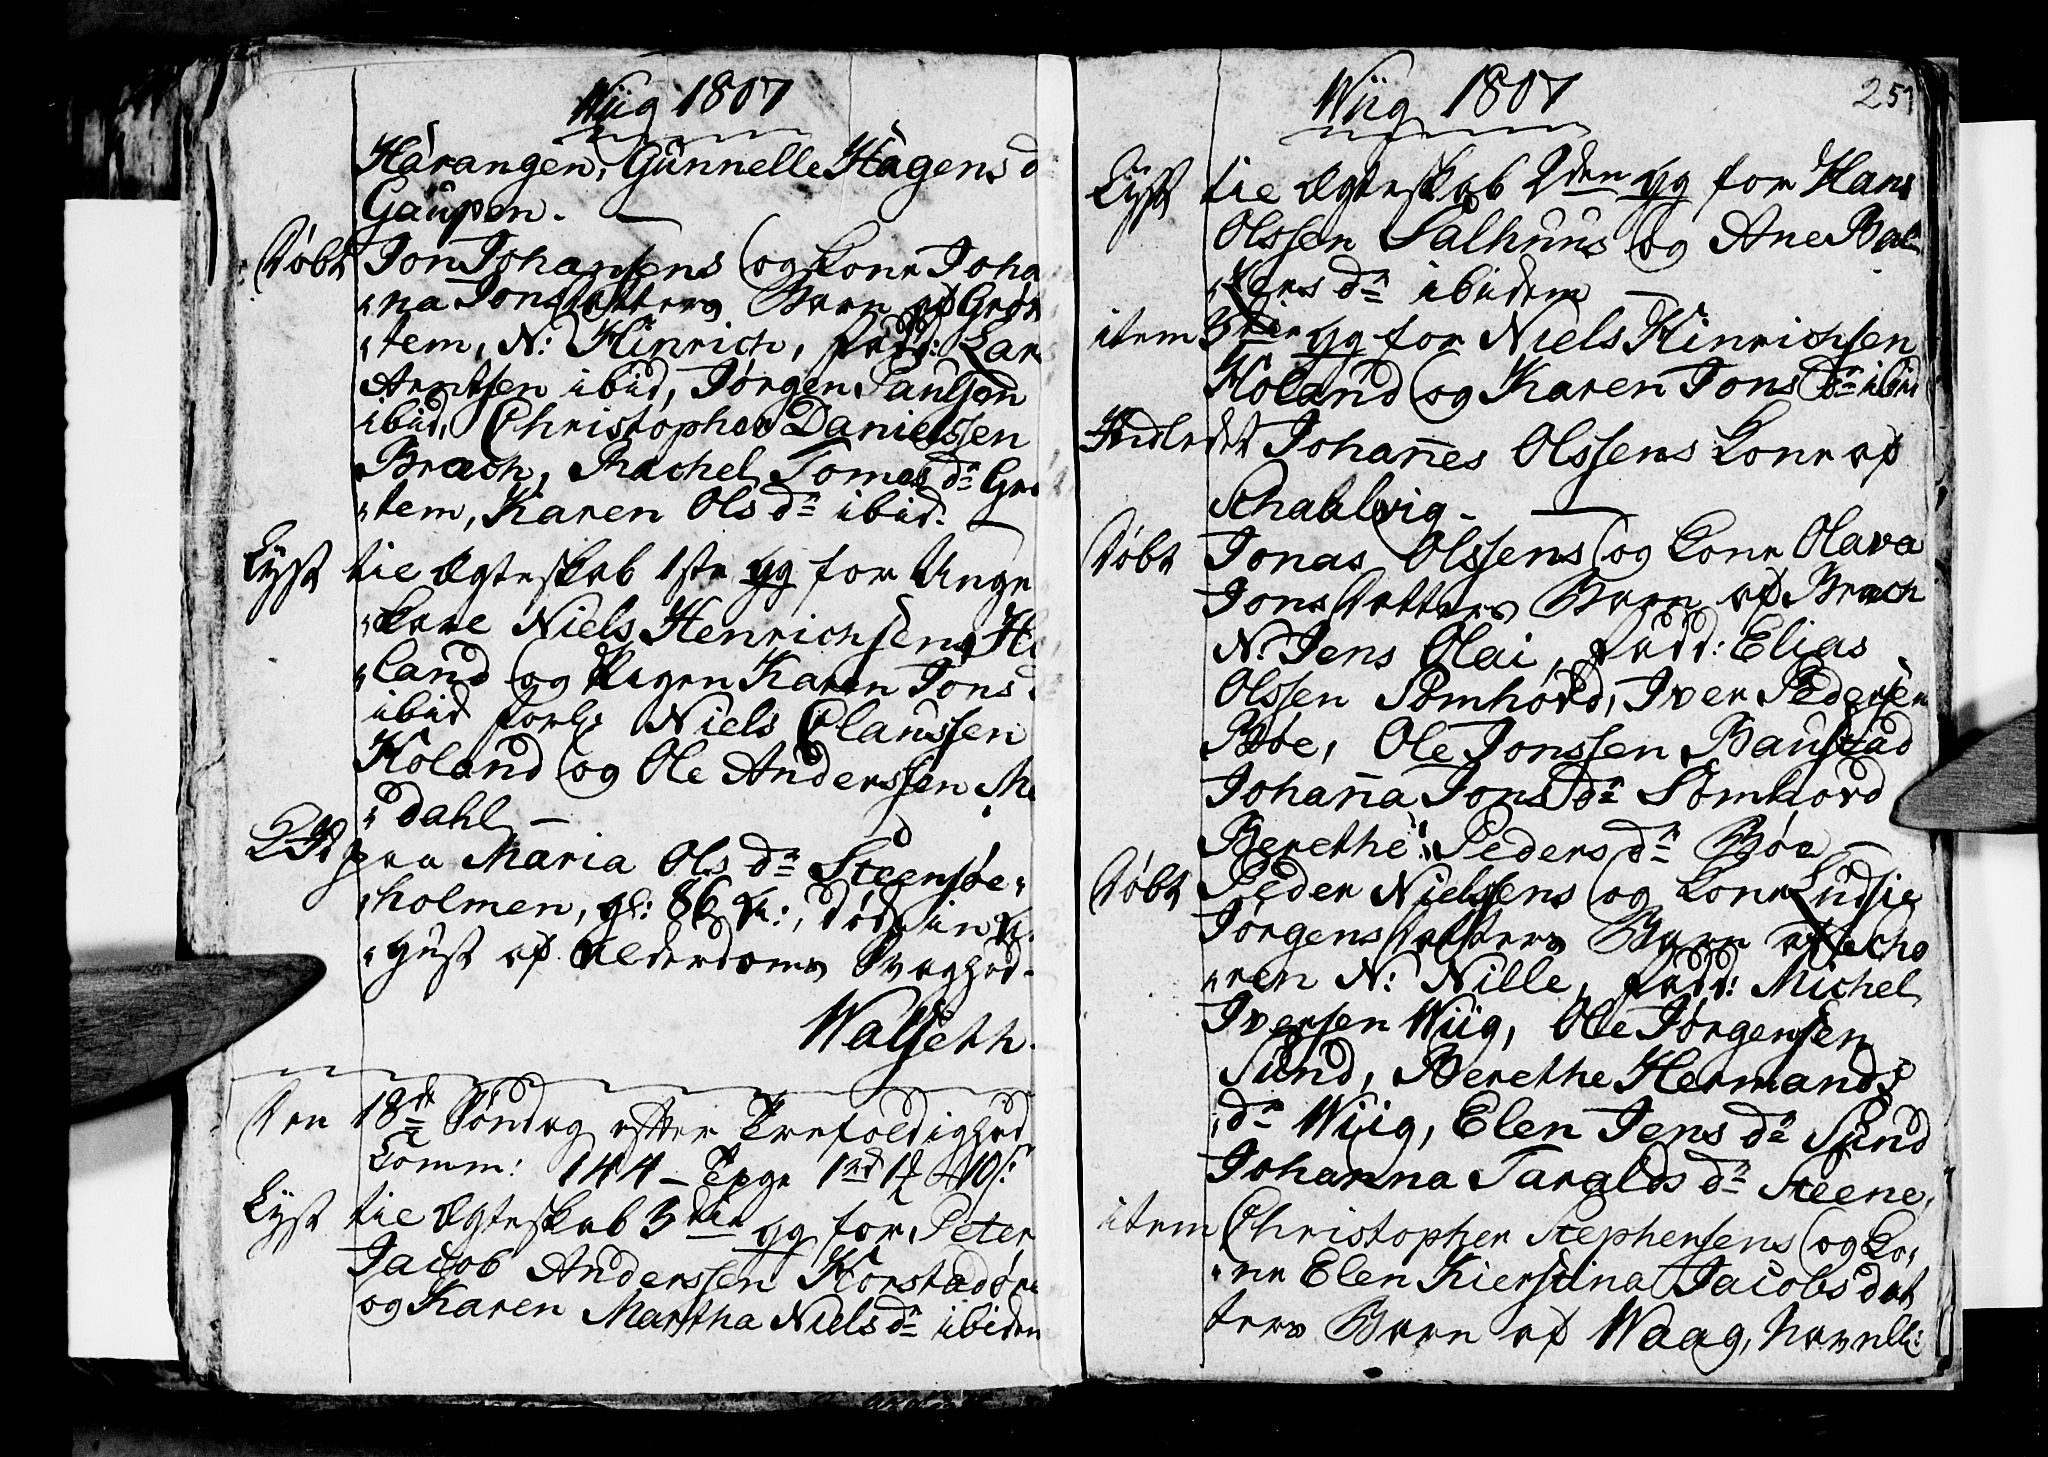 Wiig 1807
Harangen, Gunnelle Hagens d
Gaupen.
Døbt Jon Johansens og Kone Joha
na Jonsdatters Barn af Grøn
tem, N: Hinrich, Fadd: Lars
Arntsen ibid, Jørgen Paulsen
ibid, Christopher Danielssen
Brach, Rachel Tomas dr Grø
tem, Karen Ols dr ibid.
Lyst til Ægteskab 1ste gg for Unge
Karl Niels Henrichsen Ho
land og Pigen Karen Jons
ibid forl: Niels Claussen
Holand og Ole Anderssen Me
dahl
paa Maria Ols dr Steensøe
holmen, gl: 86 Aar, døde
af Alderdoms Svaghed.
Walseth.
Den 18de Søndag efter Trefoldighed
Comm: 144
Lyst til Ægteskab 3die gg for Peter
Jacob Anderssen Korstadøre
og Karen Martha Niels dr ibidem
Wiig 1807
Lyst til Ægteskab 2den gg for Hans
Olssen Salhuus og Ane Bal
dr ibidem
item 3die gg for Niels Hinrichsen
Holand og Karen Jons dr ibid
Indledet Johannes Olssens Kone af
Schaalvig
Døbt Jonas Olssens og Kone Olava
Jonsdatters Barn af Brach
N: Jens Olai, Fadd: Elias
Olssen Somhovd, Iver Pedersen
Bøe, Ole Jonssen Baustad
Johanna Jons dr Somhovd
Berethe Peders dr Bøe
Døbt Peder Nielssens og Kone Ludsie
Jørgensdatters Barn af Scho
ren N: Nille, Fadd: Michel
Iversen Wiig, Ole Jørgensen
Sund, Berethe Hermands
dr Wiig, Elen Jens dr Sund
Johanna Taralds dr Steene,
item Christopher Stephensens og Ko
ne Elen Kierstina Jacobs dat
ters Barn af Waag, Navnlig: